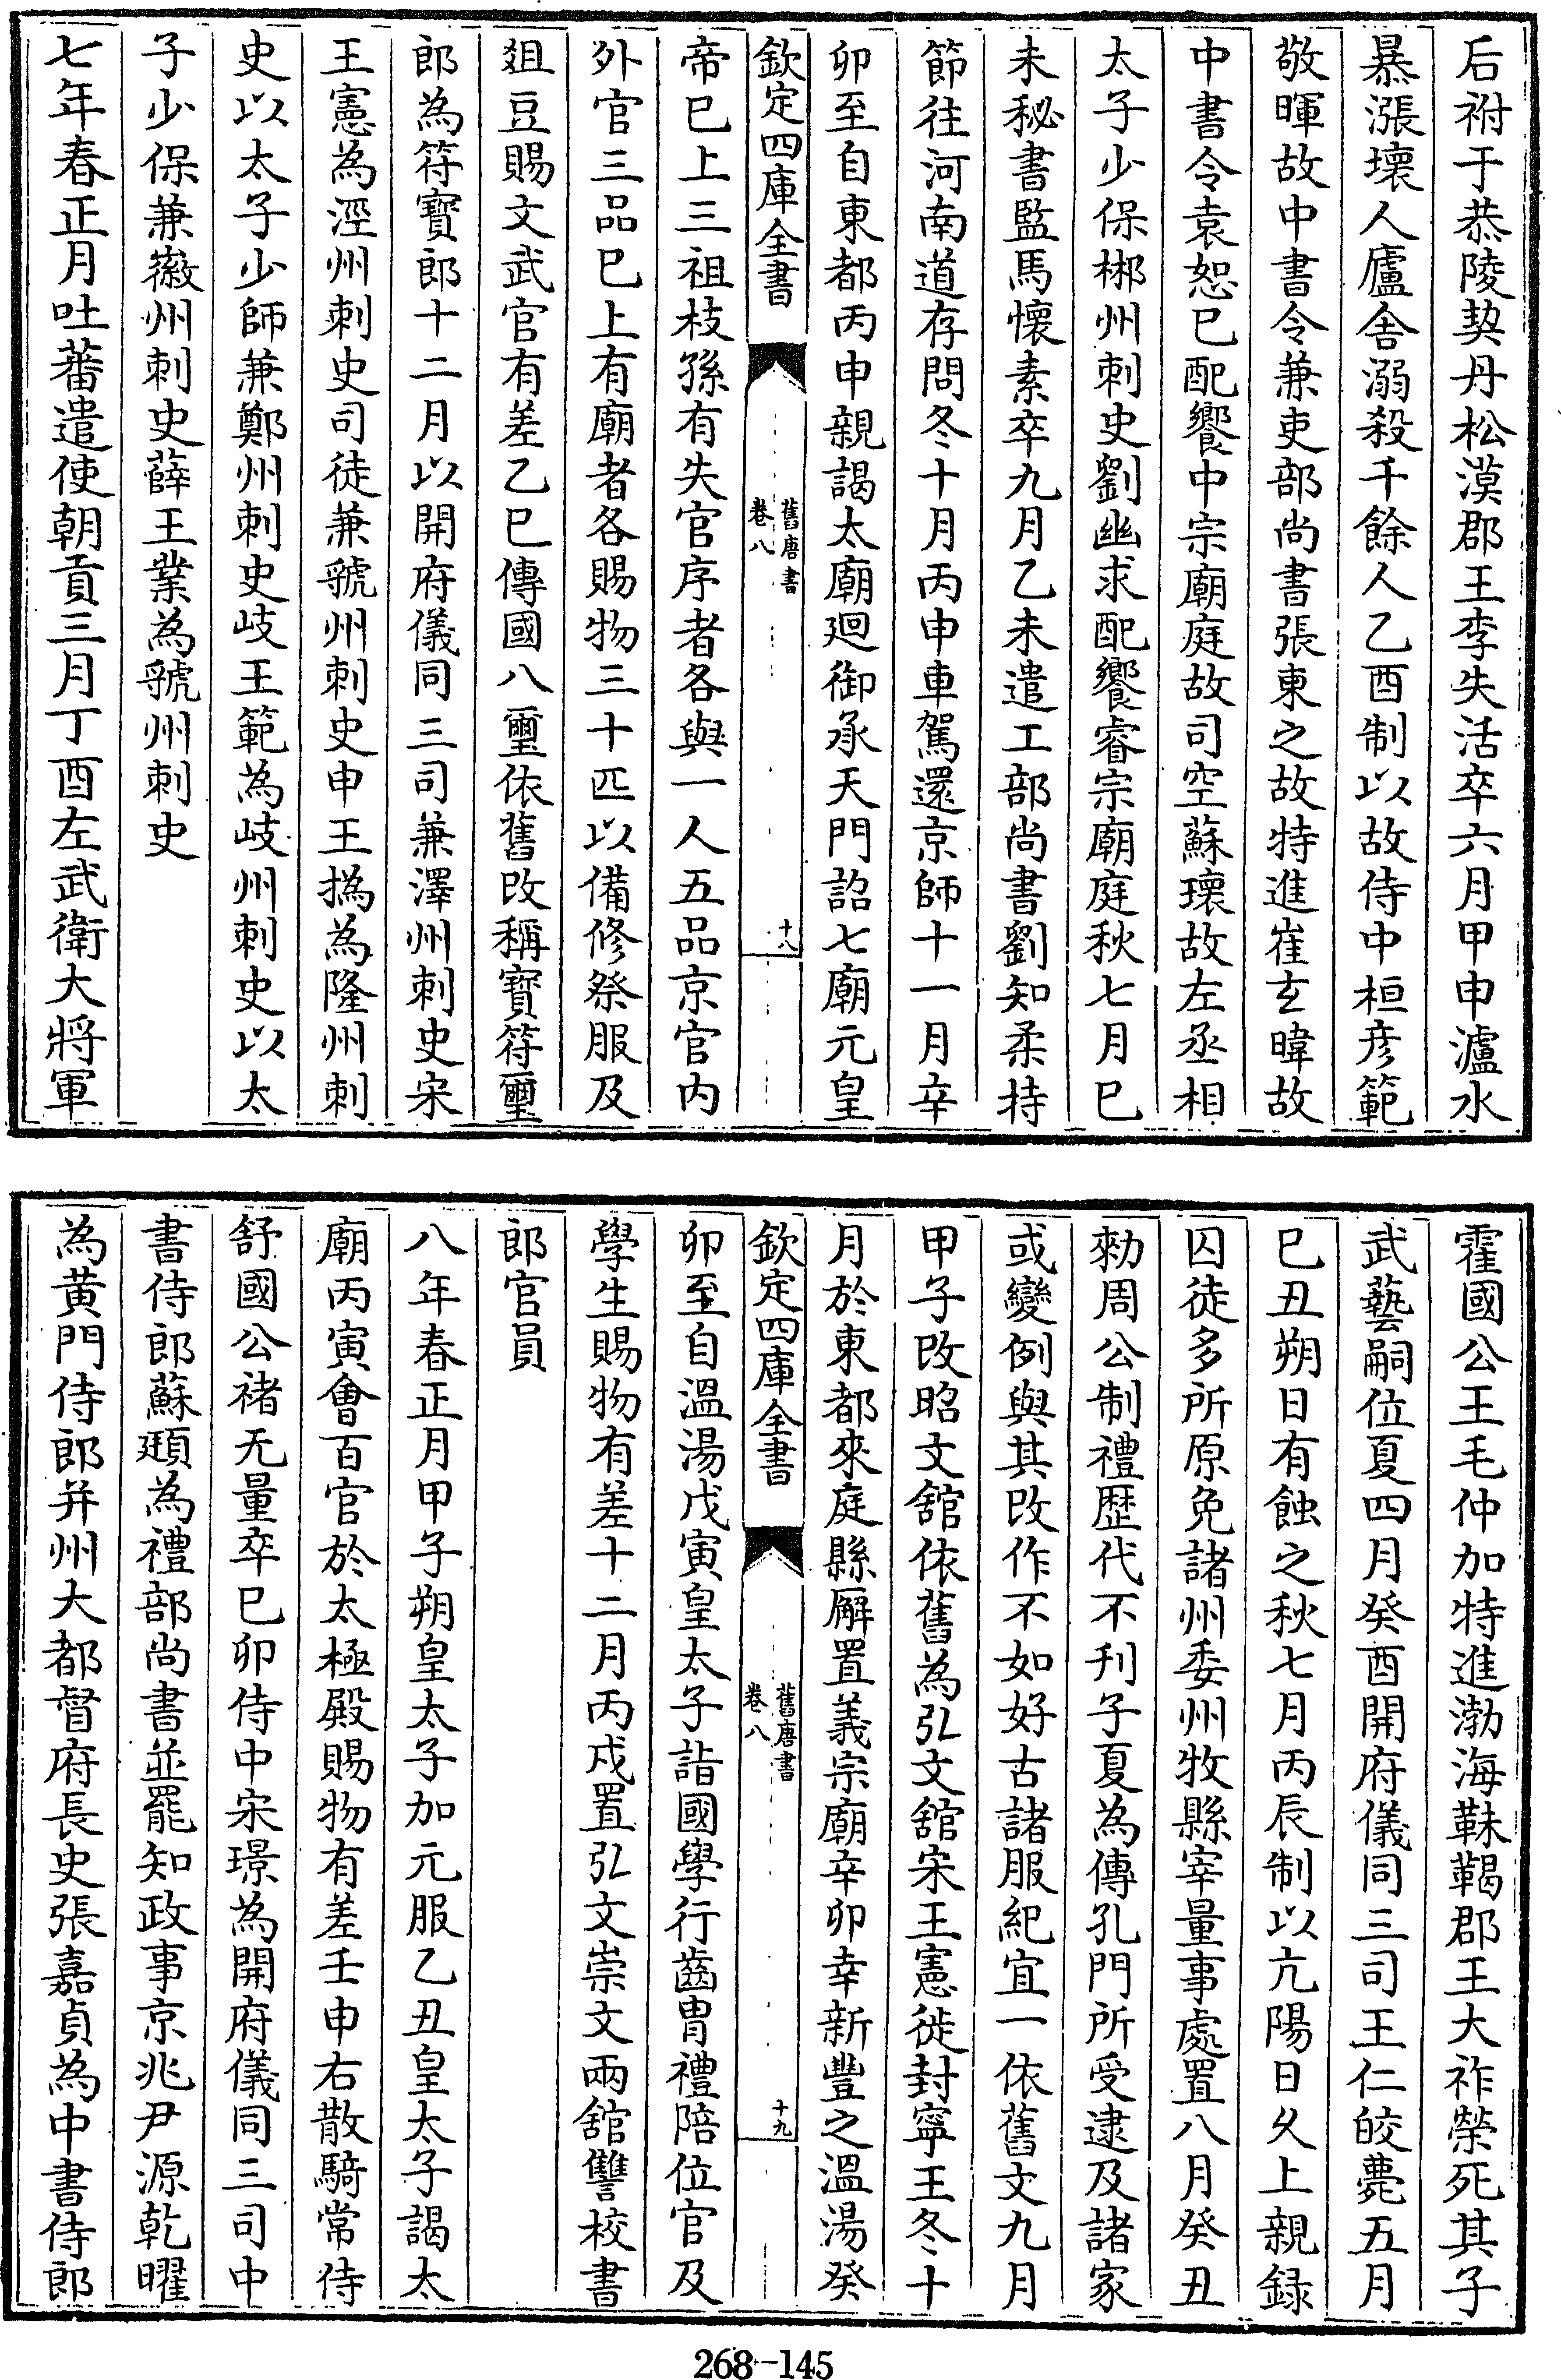 后祔于恭陵契丹松漠郡王李失活卒六月甲申瀘水
暴漲壞人廬舍溺殺千餘人乙酉制以故侍中桓彥範
敬暉故中書令兼吏部尚書張東之故特進崔玄暐故
中書令袁恕已配饗中宗廟庭故司空蘇瓌故左丞相
太子少保郴州刺史劉幽求配饗睿宗廟庭秋七月巳
未秘書監馬懷素卒九月乙未遣工部尚書劉知柔持
節往河南道存問冬十月丙申車駕還京師十一月辛
卯至自東都丙申親謁太廟廻御承天門詔七廟元皇
欽定四庫全書
舊唐書
卷八
十八
帝巳上三祖枝孫有失官序者各與一人五品京官内
外官三品巳上有廟者各賜物三十匹以備修祭服及
俎豆賜文武官有差乙巳傳國八璽依舊改稱寶符璽
郎為符寶郎十二月以開府儀同三司兼澤州刺史宋
王憲為涇州刺史司徒兼虢州刺史申王撝為隆州刺
史以太子少師兼鄭州刺史岐王範為岐州刺史以太
子少保兼徽州刺史薛王業為虢州刺史
七年春正月吐蕃遣使朝貢三月丁酉左武衛大將軍
霍國公王毛仲加特進渤海靺鞨郡王大祚榮死其子
武藝嗣位夏四月癸酉開府儀同三司王仁皎薨五月
巳丑朔日有蝕之秋七月丙辰制以亢陽日久上親録
囚徒多所原免諸州委州牧縣宰量事處置八月癸丑
勑周公制禮歴代不刋子夏為傳孔門所受逮及諸家
或變例與其改作不如好古諸服紀宜一依舊文九月
甲子改昭文舘依舊為弘文舘宋王憲徙封寧王冬十
月於東都來庭縣廨置義宗廟辛卯幸新豐之溫湯癸
欽定四庫全書
舊唐書
卷八
十九
卯至自溫湯戊寅皇太子詣國學行齒胄禮陪位官及
學生賜物有差十二月丙戌置弘文崇文兩舘讐校書
郎官員
八年春正月甲子朔皇太子加元服乙丑皇太子謁太
廟丙寅會百官於太極殿賜物有差壬申右散騎常侍
舒國公褚无量卒巳卯侍中宋璟為開府儀同三司中
書侍郎蘇頲為禮部尚書並罷知政事京兆尹源乾曜
為黄門侍郎并州大都督府長史張嘉貞為中書侍郎
268-145